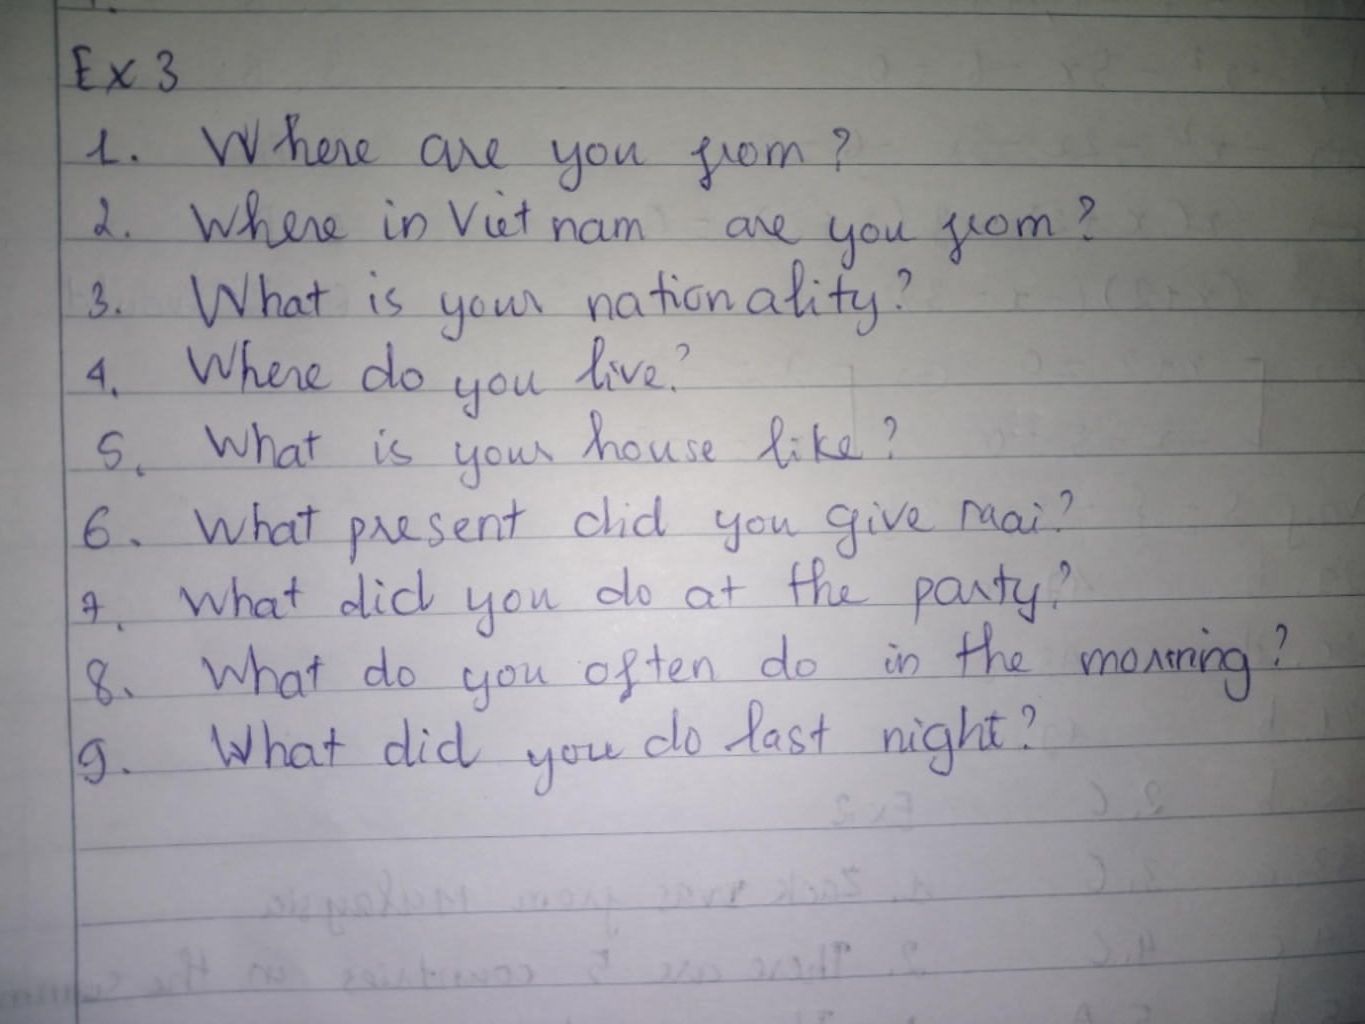 Ex 3
1. Where are you from?
2. Where in Viet nam are you from?
3. What is your nationality?
4. Where do you live?
5. What is your house like?
6. What present did you give Mai?
7. What did you do at the party?
8. What do you often do in the morning?
9. What did you do last night?